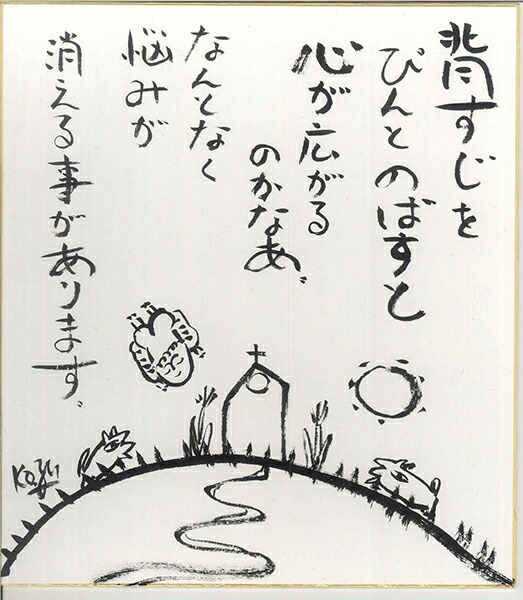 背すじを
ぴんとのばすと
心が広がる
のかなあ。
なんとなく
悩みが
消える事があります。